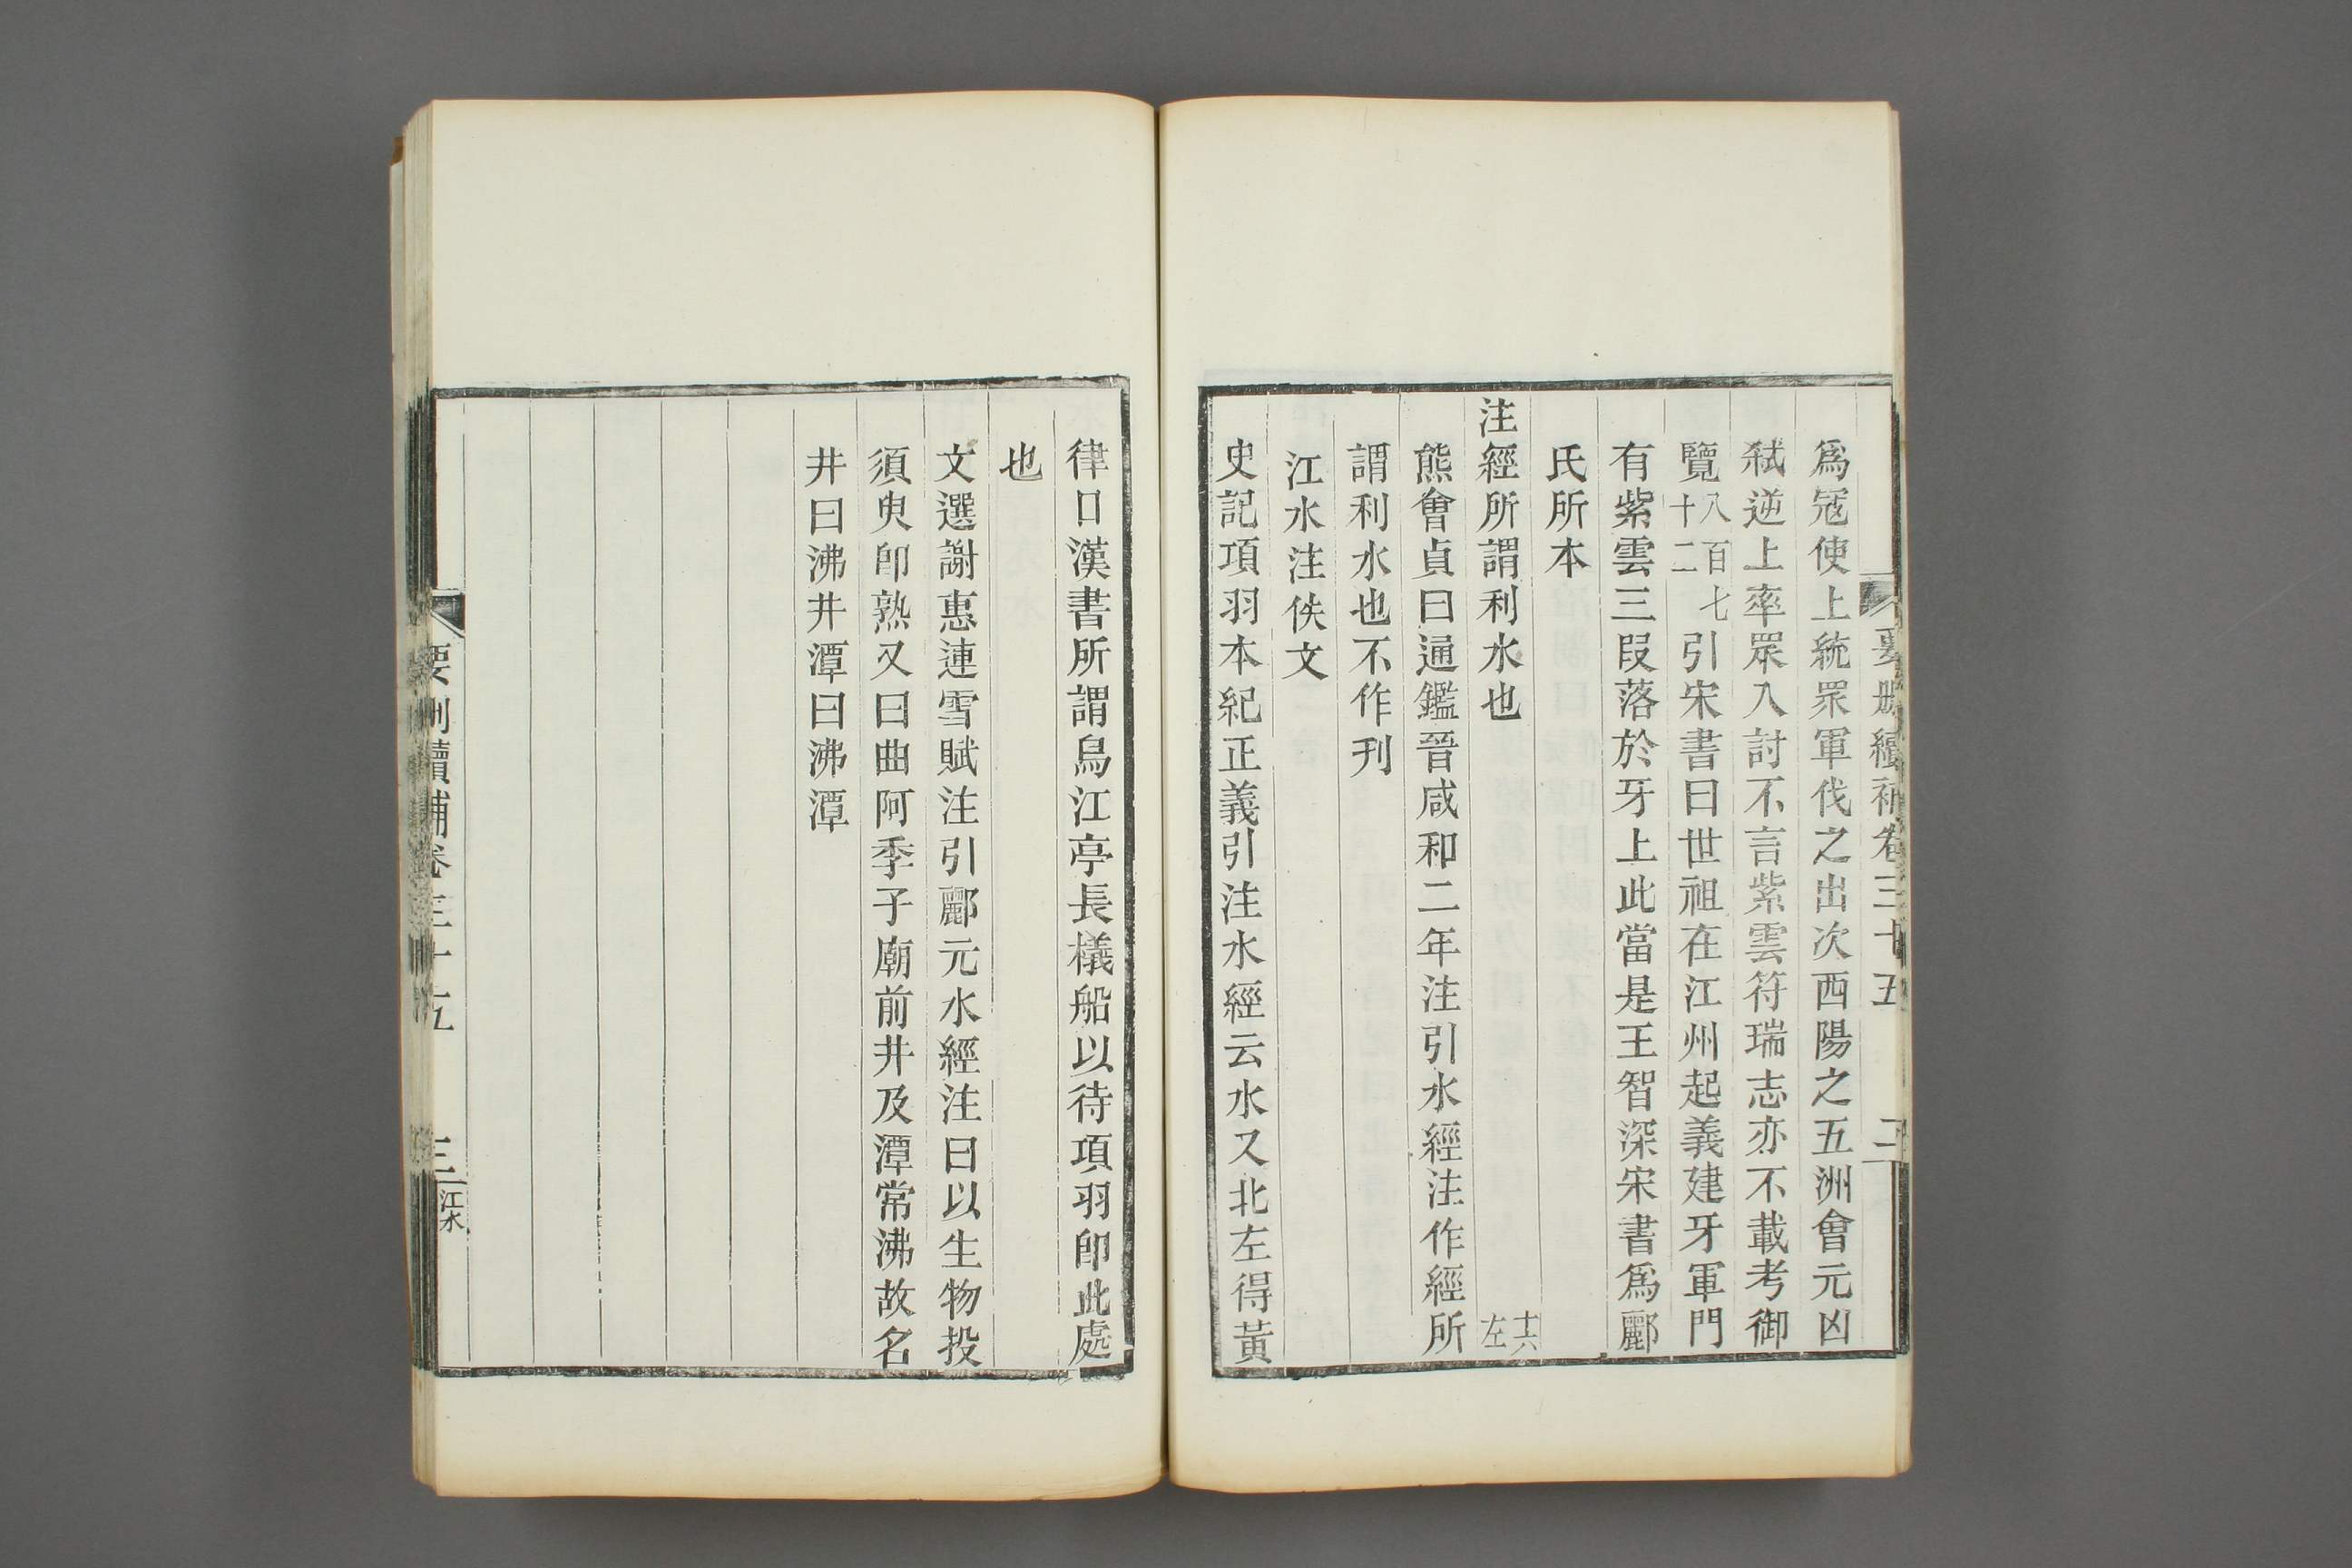 要刪續補卷三十五　二
爲寇使上統眾軍伐之出次西陽之五洲會元凶
弑逆上率眾入討不言紫雲符瑞志亦不載考御
覽八百七十二引宋書曰世祖在江州起義建牙軍門
有紫雲三段落於牙上此當是王智深宋書爲酈
氏所本
注經所謂利水也　十六左
熊會貞曰通鑑晉咸和二年注引水經注作經所
謂利水也不作刊
江水注佚文
史記項羽本紀正義引注水經云水又北左得黃
律口漢書所謂烏江亭長檥船以待項羽卽此處
也
文選謝惠連雪賦注引酈元水經注曰以生物投
須臾卽熟又曰曲阿季子廟前井及潭常沸故名
井曰沸井潭曰沸潭
要刪續補卷三十五　三　江水